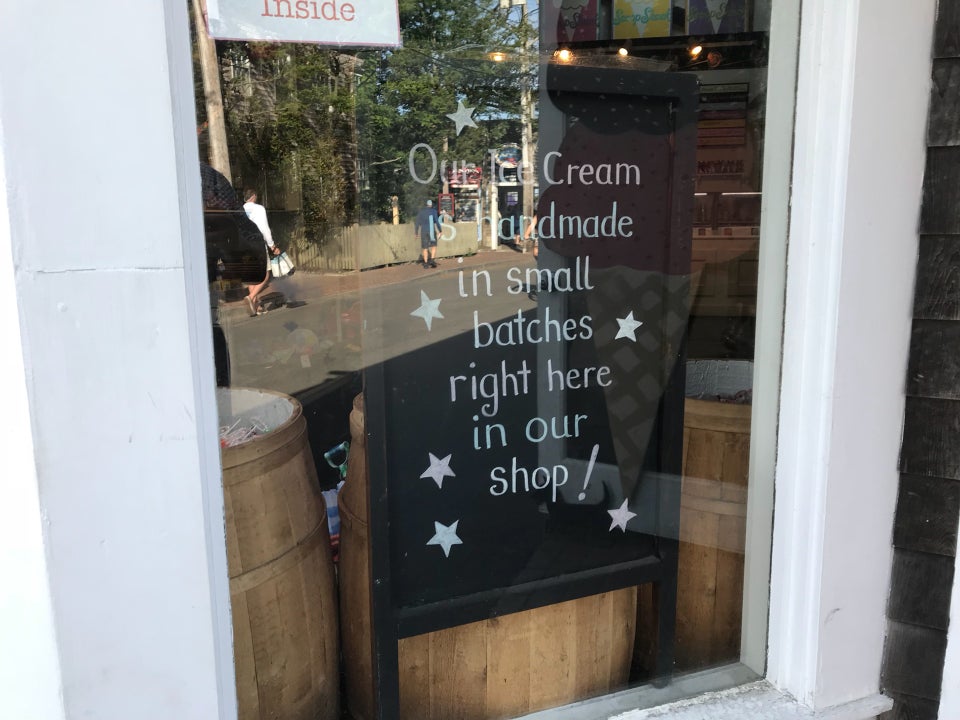 Inside
Our Ice Cream
is handmade
in small
batches
right here
in our
shop!